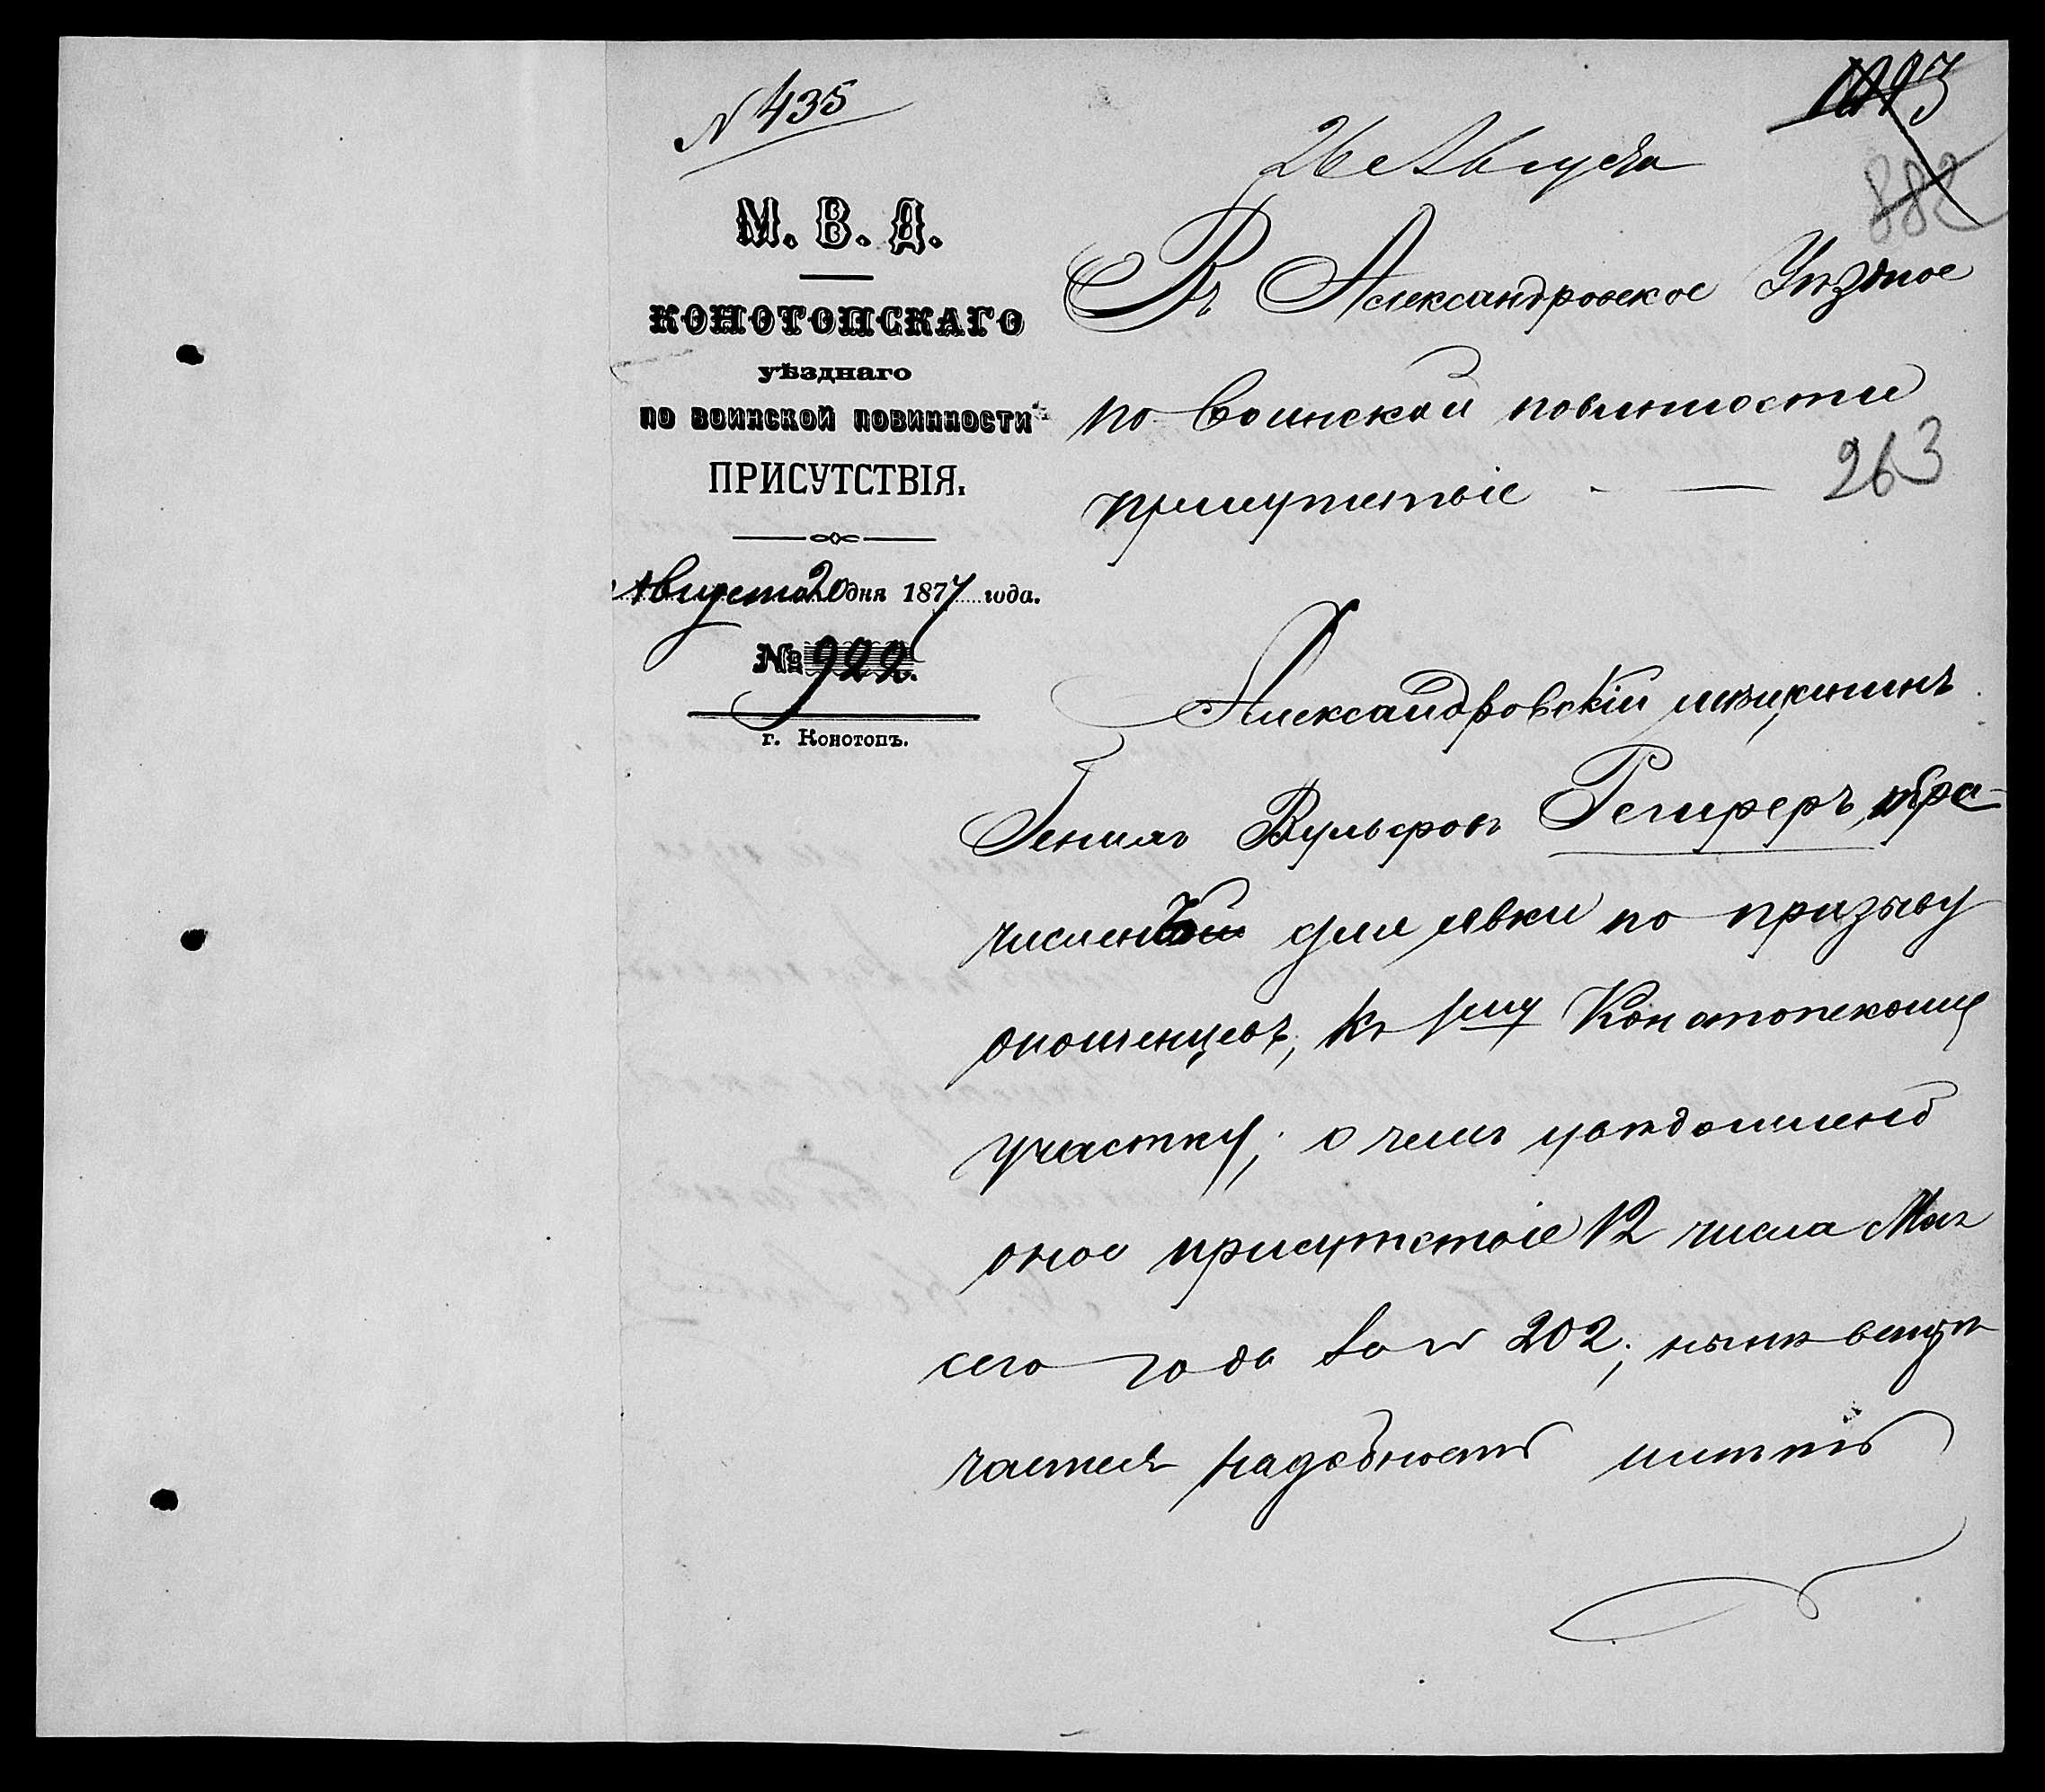 N 435
М. В. Д.
КОНОТОПСКАГО
уѣзднаго
ПО ВОИНСКОЙ ПОВИННОСТИ
ПРИСУТСТВІЯ.
Августа 20 дня 1877 года.
№ 922.
г. Конотопъ.
882
26 Августа
Въ Александровское Уѣздное
по воинской повинности
присутствіе
263
Александровскій мѣщанинъ
Вульфовъ
для явки по призыву
ополченцевъ, къ 1му Конотопскому
участку; о чемъ увѣдомлено
оное присутствіе 12 числа Мая
сего года за N 202; нынѣ встрѣ-
чается надобность имѣть